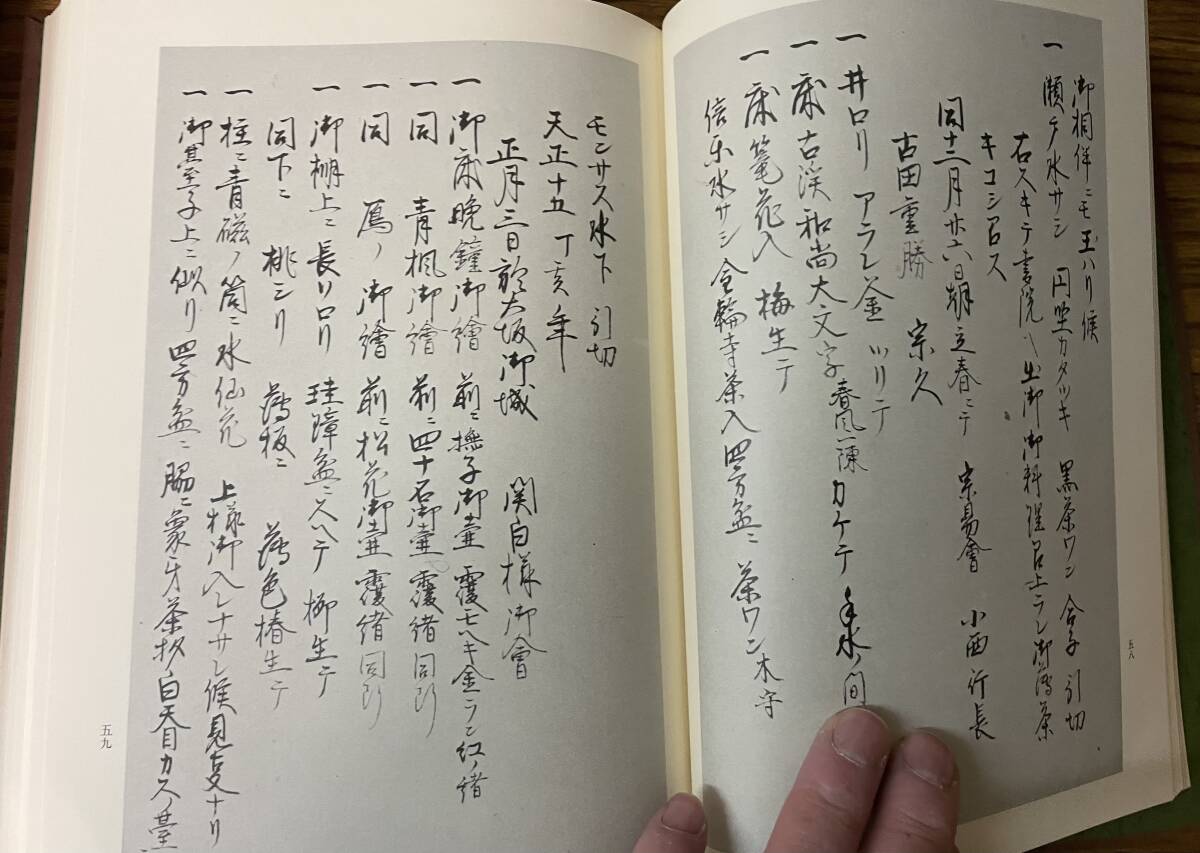 御相伴ニモ玉ハリ候
一 瀬戸水サシ 円坐カタツキ 黒茶ワン 合子 引切
右スキテ書院ヘ出御御料理召上ラレ御薄茶
キコシメス
同十二月廿六日朝立春ニテ 宗易會 小西行長
古田重勝 宗久
一 井ロリ アラレ釜 ツリテ
一 床 古渓和尚大文字 春風一陳 カケテ 手水ノ間
一 床 篭花入 梅生テ
信楽水サシ 金輪寺茶入 四方盆ニ 茶ワン木守
五八
モンサス水下 引切
天正十五丁亥年
正月三日於大坂御城 関白様御會
一 御床 晩鐘御繪 前ニ撫子御壷 覆モヘキ金ラン 紅ノ緒
一 同 青楓御繪 前ニ四十石御壷 覆緒同断
一 同 雁ノ御繪 前ニ松花御壷 覆緒同断
一 御棚上ニ 長ソロリ 珪璋盆ニスヘテ 柳生テ
同下ニ 桃シリ 薄板ニ 薄色椿生テ
一 柱ニ青磁ノ筒ニ水仙花 上様御入レナサレ候見事ナリ
一 御臺子上ニ似リ 四方盆ニ 脇ニ象牙茶杓 白天目カスノ臺
五九